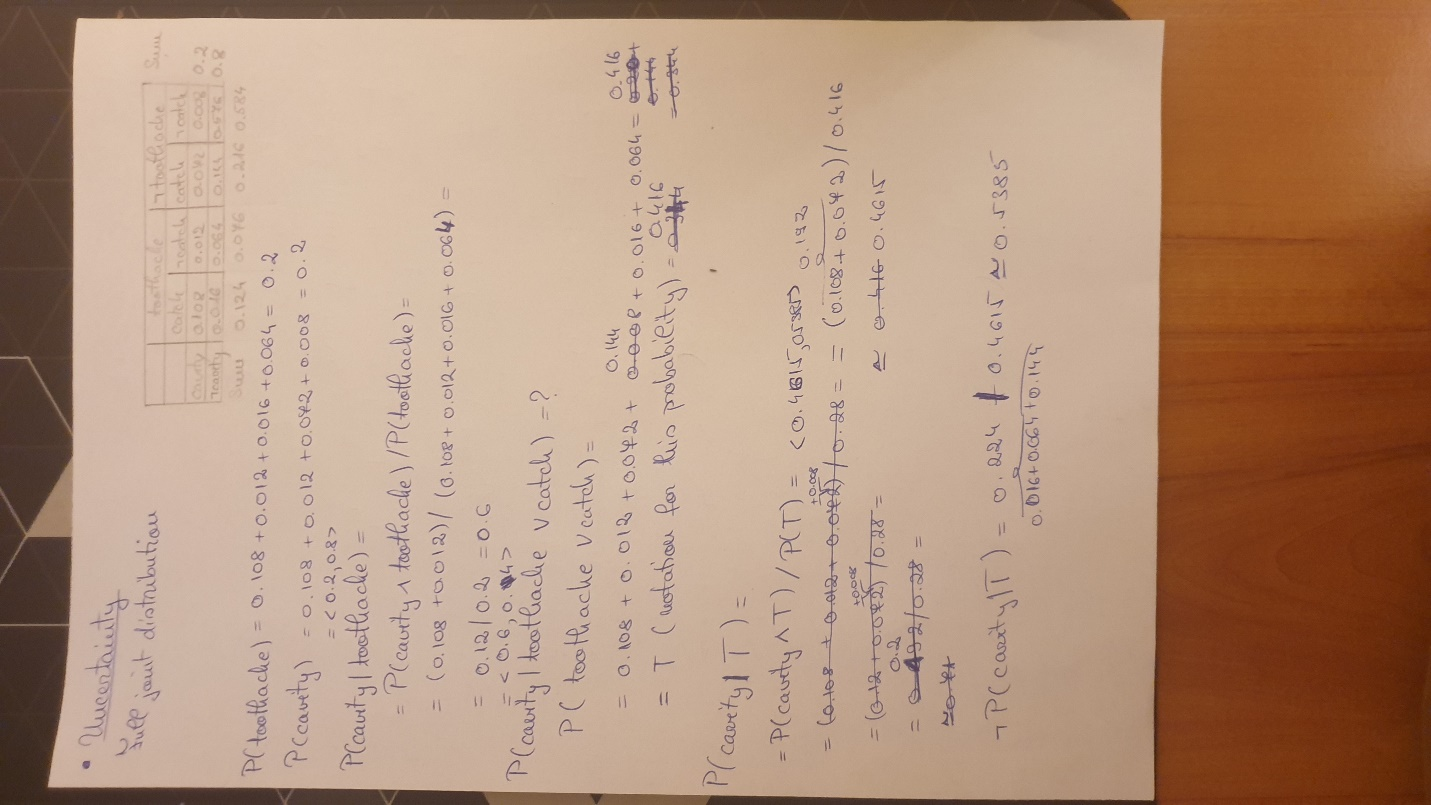 • Uncertainty
Full joint distribution
toothache ¬toothache Sum
catch ¬catch catch ¬catch
cavity 0.108 0.012 0.072 0.008 0.2
¬cavity 0.016 0.064 0.144 0.576 0.8
Sum 0.124 0.076 0.216 0.584
P(toothache) = 0.108 + 0.012 + 0.016 + 0.064 = 0.2
P(cavity) = 0.108 + 0.012 + 0.072 + 0.008 = 0.2
= <0.2, 0.8>
P(cavity | toothache) =
= P(cavity ∧ toothache) / P(toothache) =
= (0.108 + 0.012) / (0.108 + 0.012 + 0.016 + 0.064) =
= 0.12 / 0.2 = 0.6
= <0.6, 0.4>
P(cavity | toothache ∨ catch) = ?
P(toothache ∨ catch) =
0.144 0.416
= 0.108 + 0.012 + 0.072 + 0.008 + 0.016 + 0.064 = 0.204
0.144
0.416
= T (notation for this probability) = 0.344 = 0.344
P(cavity | T) =
= P(cavity ∧ T) / P(T) = <0.4615, 0.5385> 0.192
+0.008
= (0.108 + 0.012 + 0.072) / 0.28 = = (0.108 + 0.072) / 0.416
+0.008
= (0.12 + 0.072) / 0.28 = ≈ 0.416 0.4615
0.2
= 0.192 / 0.28 =
¬P(cavity | T) = 0.224 / 0.4615 ≈ 0.5385
0.016 + 0.064 + 0.144